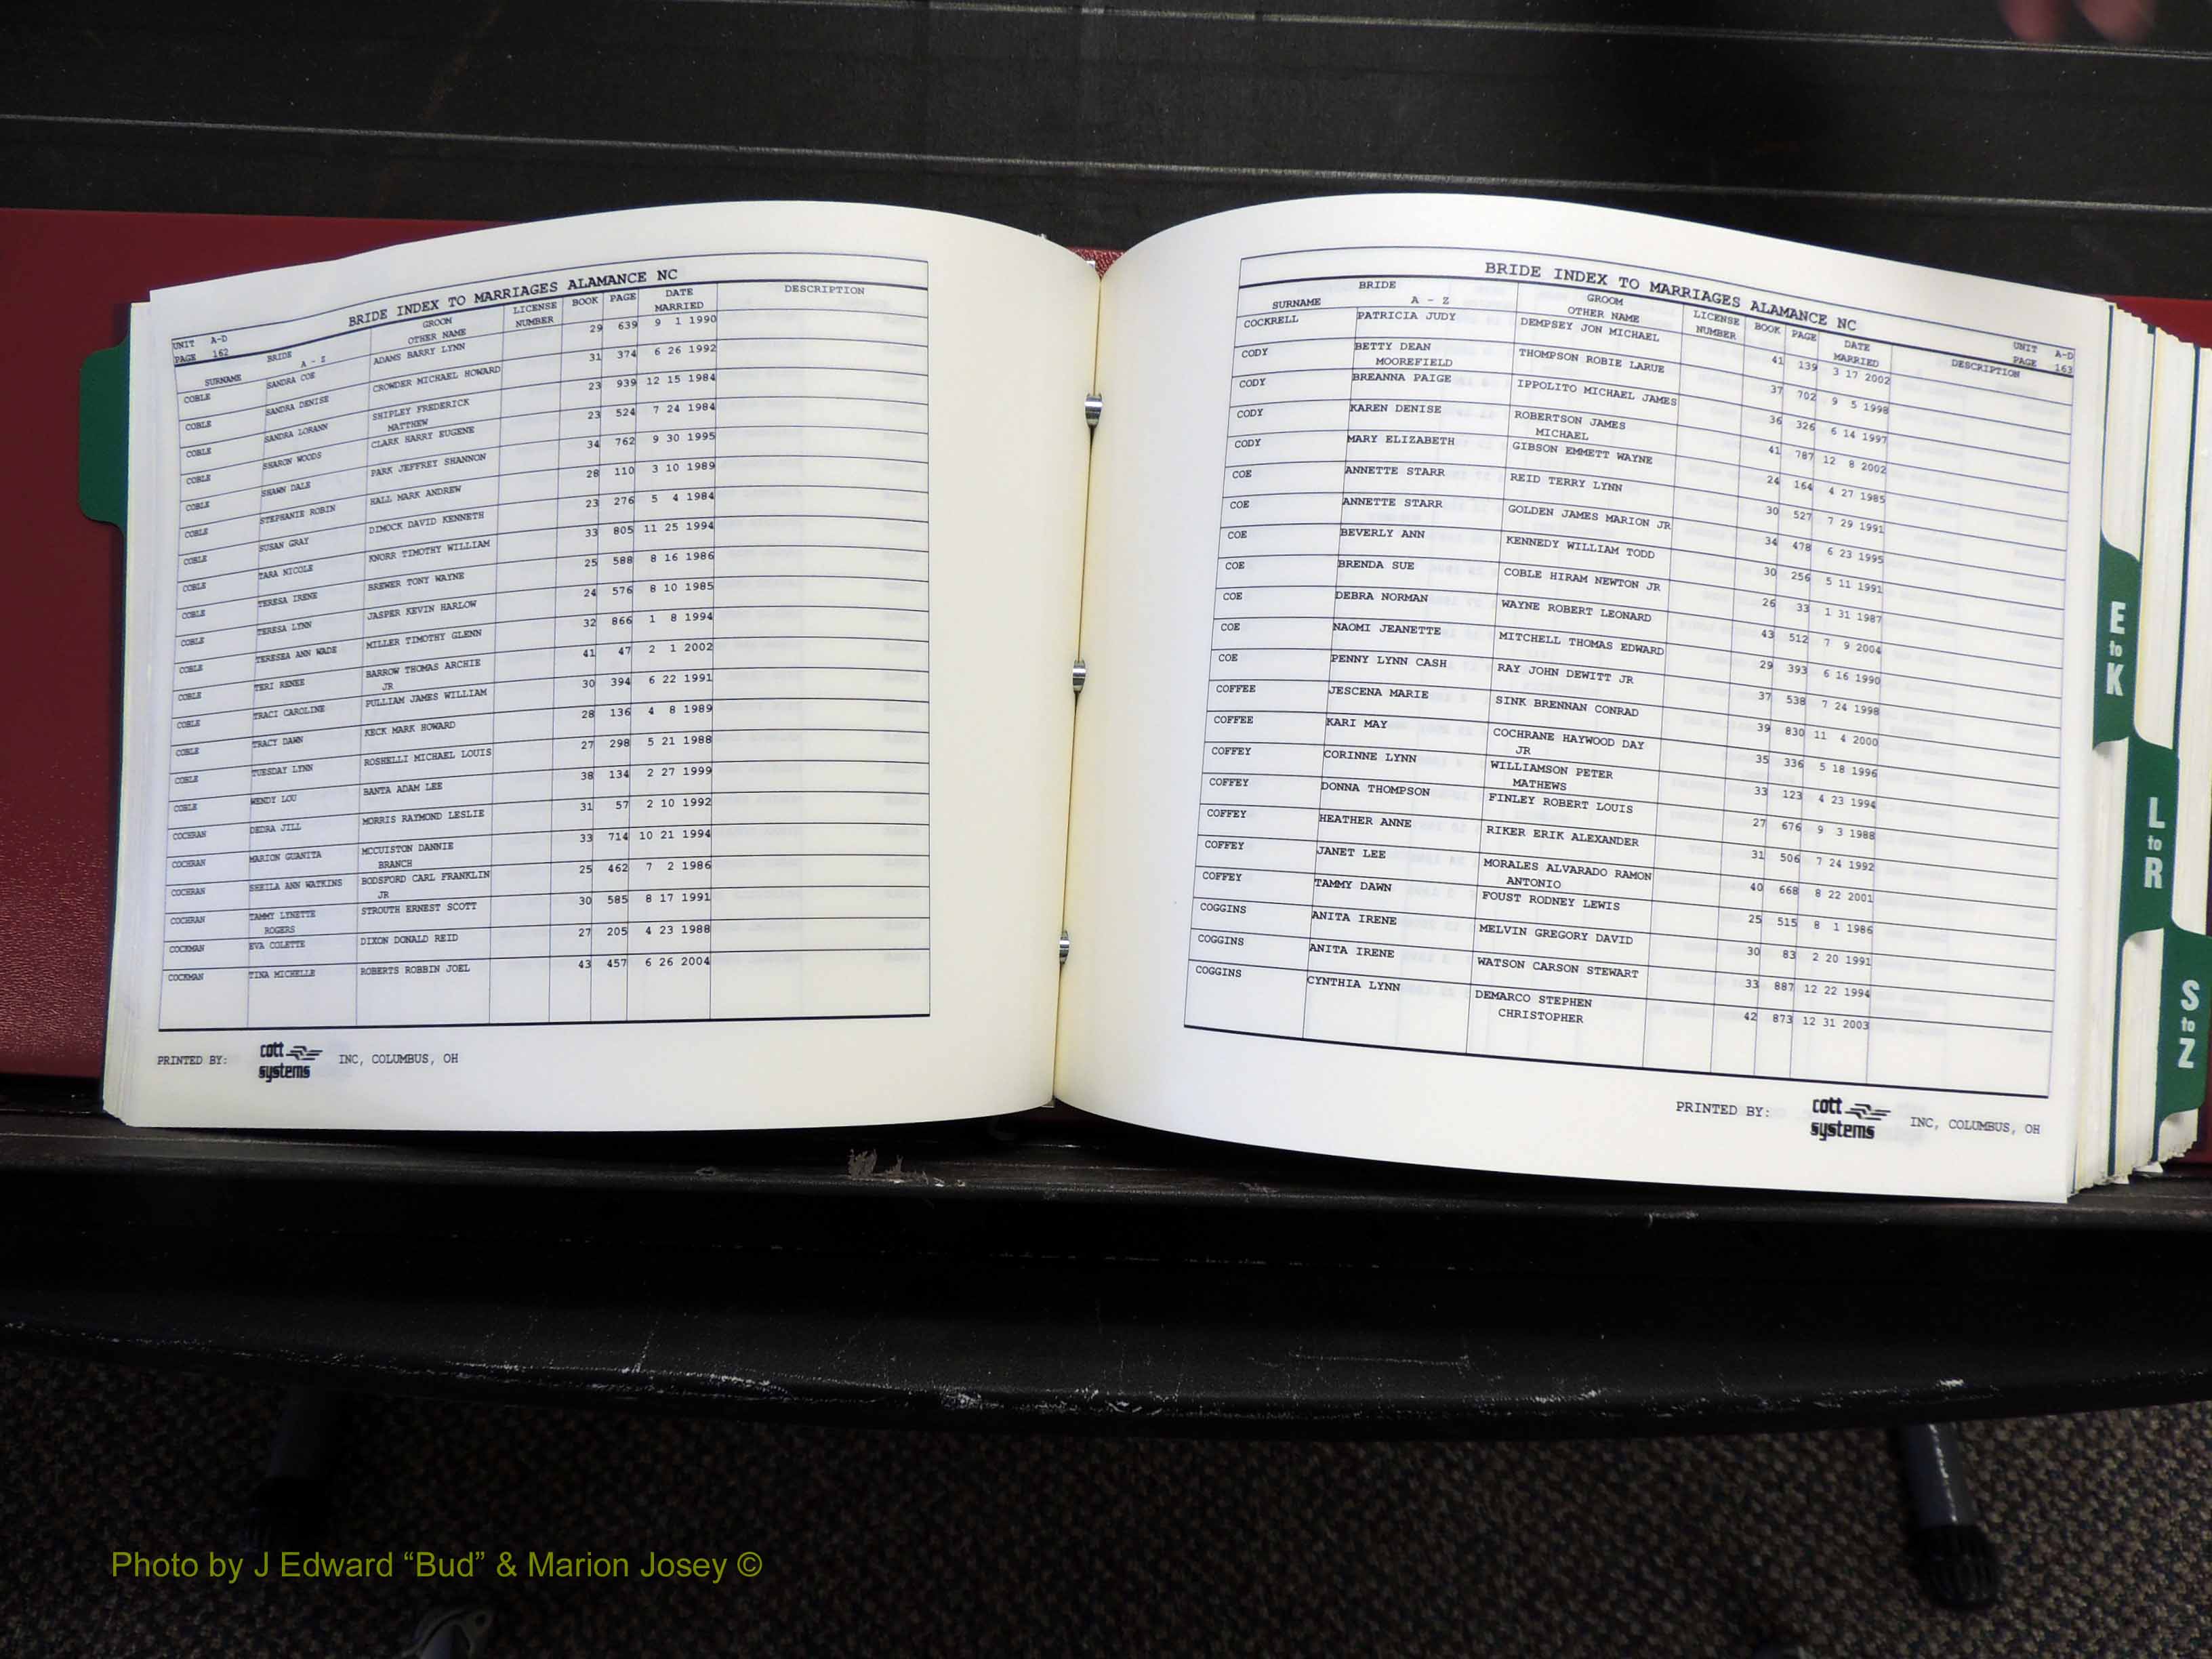 BRIDE INDEX TO MARRIAGES ALAMANCE NC
UNIT A-D
PAGE 162
BRIDE GROOM LICENSE BOOK PAGE DATE DESCRIPTION
SURNAME A - Z OTHER NAME NUMBER MARRIED
COBLE SANDRA COE ADAMS BARRY LYNN 29 639 9 1 1990
COBLE SANDRA DENISE CROWDER MICHAEL HOWARD 31 374 6 26 1992
COBLE SANDRA LORANN SHIPLEY FREDERICK 23 939 12 15 1984
MATTHEW
COBLE SHARON WOODS CLARK HARRY EUGENE 23 524 7 24 1984
COBLE SHAWN DALE PARK JEFFREY SHANNON 34 762 9 30 1995
COBLE STEPHANIE ROBIN HALL MARK ANDREW 28 110 3 10 1989
COBLE SUSAN GRAY DIMOCK DAVID KENNETH 23 276 5 4 1984
COBLE TARA NICOLE KNORR TIMOTHY WILLIAM 33 805 11 25 1994
COBLE TERESA IRENE BREWER TONY WAYNE 25 588 8 16 1986
COBLE TERESA LYNN JASPER KEVIN HARLOW 24 576 8 10 1985
COBLE TERESEA ANN WADE MILLER TIMOTHY GLENN 32 866 1 8 1994
COBLE TERI RENEE BARROW THOMAS ARCHIE 41 47 2 1 2002
JR
COBLE TRACI CAROLINE PULLIAM JAMES WILLIAM 30 394 6 22 1991
COBLE TRACY DAWN KECK MARK HOWARD 28 136 4 8 1989
COBLE TUESDAY LYNN ROSHELLI MICHAEL LOUIS 27 298 5 21 1988
COBLE WENDY LOU BANTA ADAM LEE 38 134 2 27 1999
COCHRAN DEDRA JILL MORRIS RAYMOND LESLIE 31 57 2 10 1992
COCHRAN MARION GUANITA MCCUISTON DANNIE 33 714 10 21 1994
BRANCH
COCHRAN SHEILA ANN WATKINS BODSFORD CARL FRANKLIN 25 462 7 2 1986
JR
COCHRAN TAMMY LYNETTE STROUTH ERNEST SCOTT 30 585 8 17 1991
ROGERS
COCKMAN EVA COLETTE DIXON DONALD REID 27 205 4 23 1988
COCKMAN TINA MICHELLE ROBERTS ROBBIN JOEL 43 457 6 26 2004
PRINTED BY: cott systems INC, COLUMBUS, OH
BRIDE INDEX TO MARRIAGES ALAMANCE NC
UNIT A-D
PAGE 163
BRIDE GROOM LICENSE BOOK PAGE DATE DESCRIPTION
SURNAME A - Z OTHER NAME NUMBER MARRIED
COCKRELL PATRICIA JUDY DEMPSEY JON MICHAEL 41 139 3 17 2002
CODY BETTY DEAN THOMPSON ROBIE LARUE 37 702 9 5 1998
MOOREFIELD
CODY BREANNA PAIGE IPPOLITO MICHAEL JAMES 36 326 6 14 1997
CODY KAREN DENISE ROBERTSON JAMES 41 787 12 8 2002
MICHAEL
CODY MARY ELIZABETH GIBSON EMMETT WAYNE 24 164 4 27 1985
COE ANNETTE STARR REID TERRY LYNN 30 527 7 29 1991
COE ANNETTE STARR GOLDEN JAMES MARION JR 34 478 6 23 1995
COE BEVERLY ANN KENNEDY WILLIAM TODD 30 256 5 11 1991
COE BRENDA SUE COBLE HIRAM NEWTON JR 26 33 1 31 1987
COE DEBRA NORMAN WAYNE ROBERT LEONARD 43 512 7 9 2004
COE NAOMI JEANETTE MITCHELL THOMAS EDWARD 29 393 6 16 1990
COE PENNY LYNN CASH RAY JOHN DEWITT JR 37 538 7 24 1998
COFFEE JESCENA MARIE SINK BRENNAN CONRAD 39 830 11 4 2000
COFFEE KARI MAY COCHRANE HAYWOOD DAY 35 336 5 18 1996
JR
COFFEY CORINNE LYNN WILLIAMSON PETER 33 123 4 23 1994
MATHEWS
COFFEY DONNA THOMPSON FINLEY ROBERT LOUIS 27 676 9 3 1988
COFFEY HEATHER ANNE RIKER ERIK ALEXANDER 31 506 7 24 1992
COFFEY JANET LEE MORALES ALVARADO RAMON 40 668 8 22 2001
ANTONIO
COFFEY TAMMY DAWN FOUST RODNEY LEWIS 25 515 8 1 1986
COGGINS ANITA IRENE MELVIN GREGORY DAVID 30 83 2 20 1991
COGGINS ANITA IRENE WATSON CARSON STEWART 33 887 12 22 1994
COGGINS CYNTHIA LYNN DEMARCO STEPHEN 42 873 12 31 2003
CHRISTOPHER
PRINTED BY: cott systems INC, COLUMBUS, OH
E to K
L to R
S to Z
Photo by J Edward “Bud” & Marion Josey ©